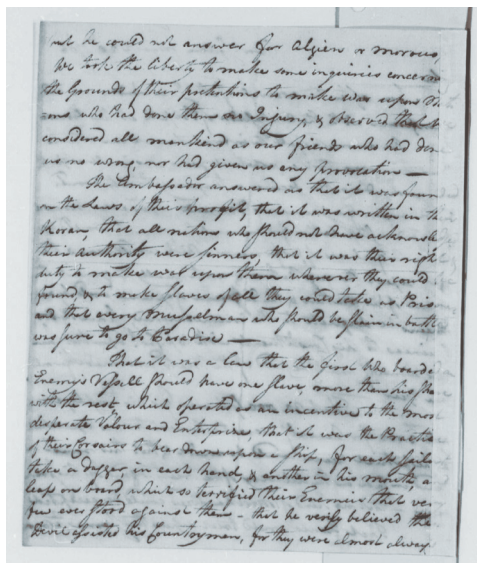 but he could not answer for Algiers or Morocco
We took the liberty to make some inquiries concern
the Grounds of their pretentions to make war upon
-ons who had done them no Injury, & observed that
considered all mankind as our friends who had done
us no wrong, nor had given us any provocation —
The Ambassador answered us that it was foun
on the Laws of their prophet, that it was written in th
Koran, that all nations who should not have acknowle
their Authority were sinners, that it was their right
duty to make war upon them wherever they could
found, & to make slaves of all they could take as Pris
and that every Musselman who should be slain in battle
was sure to go to Paradise —
That it was a law that the first who boarded
Enemy's Vessell should have one slave, more than his sha
with the rest, which operated as an incentive to the most
desperate Valour and Enterprise, that it was the Practice
of their Corsairs to bear down upon a ship, for each Sailor
take a dagger, in each hand, & another in his mouth, a
leap on board, which so terrified their Enemies that ver
few ever stood against them - that he verily believed the
Devil assisted his Countrymen, for they were almost always